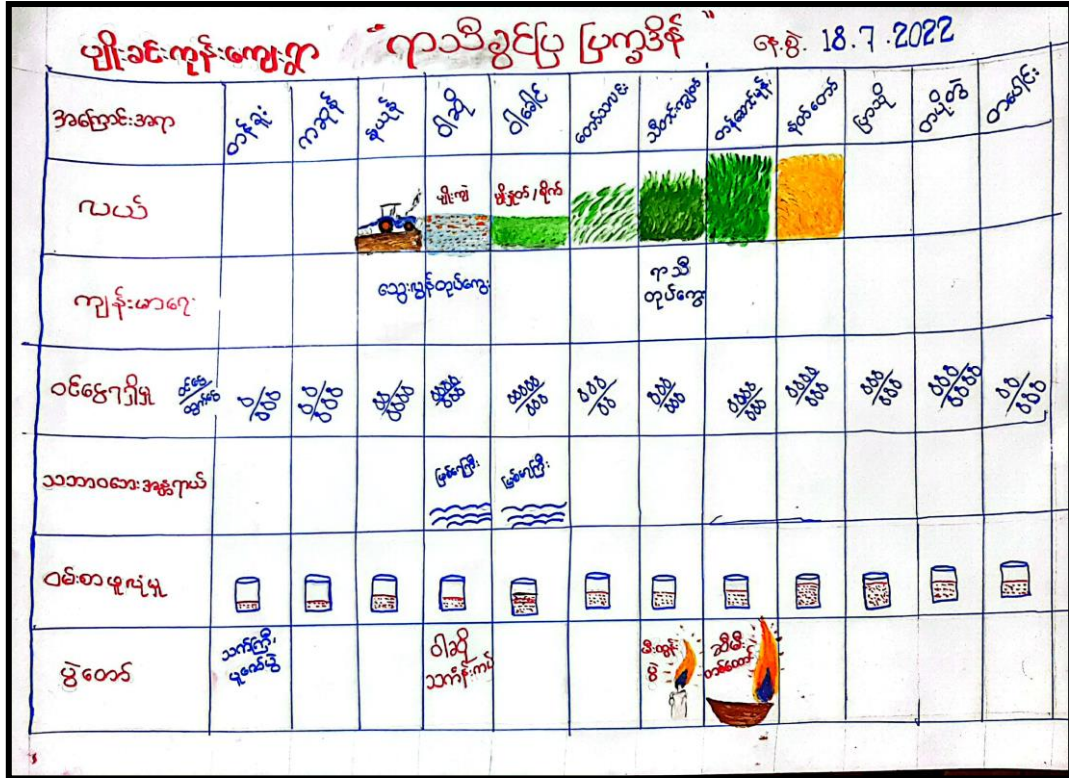 ပျိုးခင်းကုန်းကျေးရွာ "ရာသီခွင်ပြ ပြက္ခဒိန်" နေ့စွဲ. 18.7.2022
အကြောင်းအရာ တန်ခူး ကဆုန် နယုန် ဝါဆို ဝါခေါင် တော်သလင်း သီတင်းကျွတ် တန်ဆောင်မုန်း နတ်တော် ပြာသို တပို့တွဲ တပေါင်း
လယ် ပျိုးကျဲ ပျိုးနှုတ်/စိုက်
ကျန်းမာရေး သွေးလွန်တုပ်ကွေး ရာသီ
တုပ်ကွေး
ဝင်ငွေရရှိမှု ဝင်ငွေ
ထွက်ငွေ
သဘာဝဘေးအန္တရာယ် မြစ်ရေကြီး မြစ်ရေကြီး
ဝမ်းစာဖူလုံမှု
ပွဲတော် သင်္ကြန် ဝါဆို မီးထွန်း ဆီမီး
ပွဲ
သင်္ကန်းကပ်